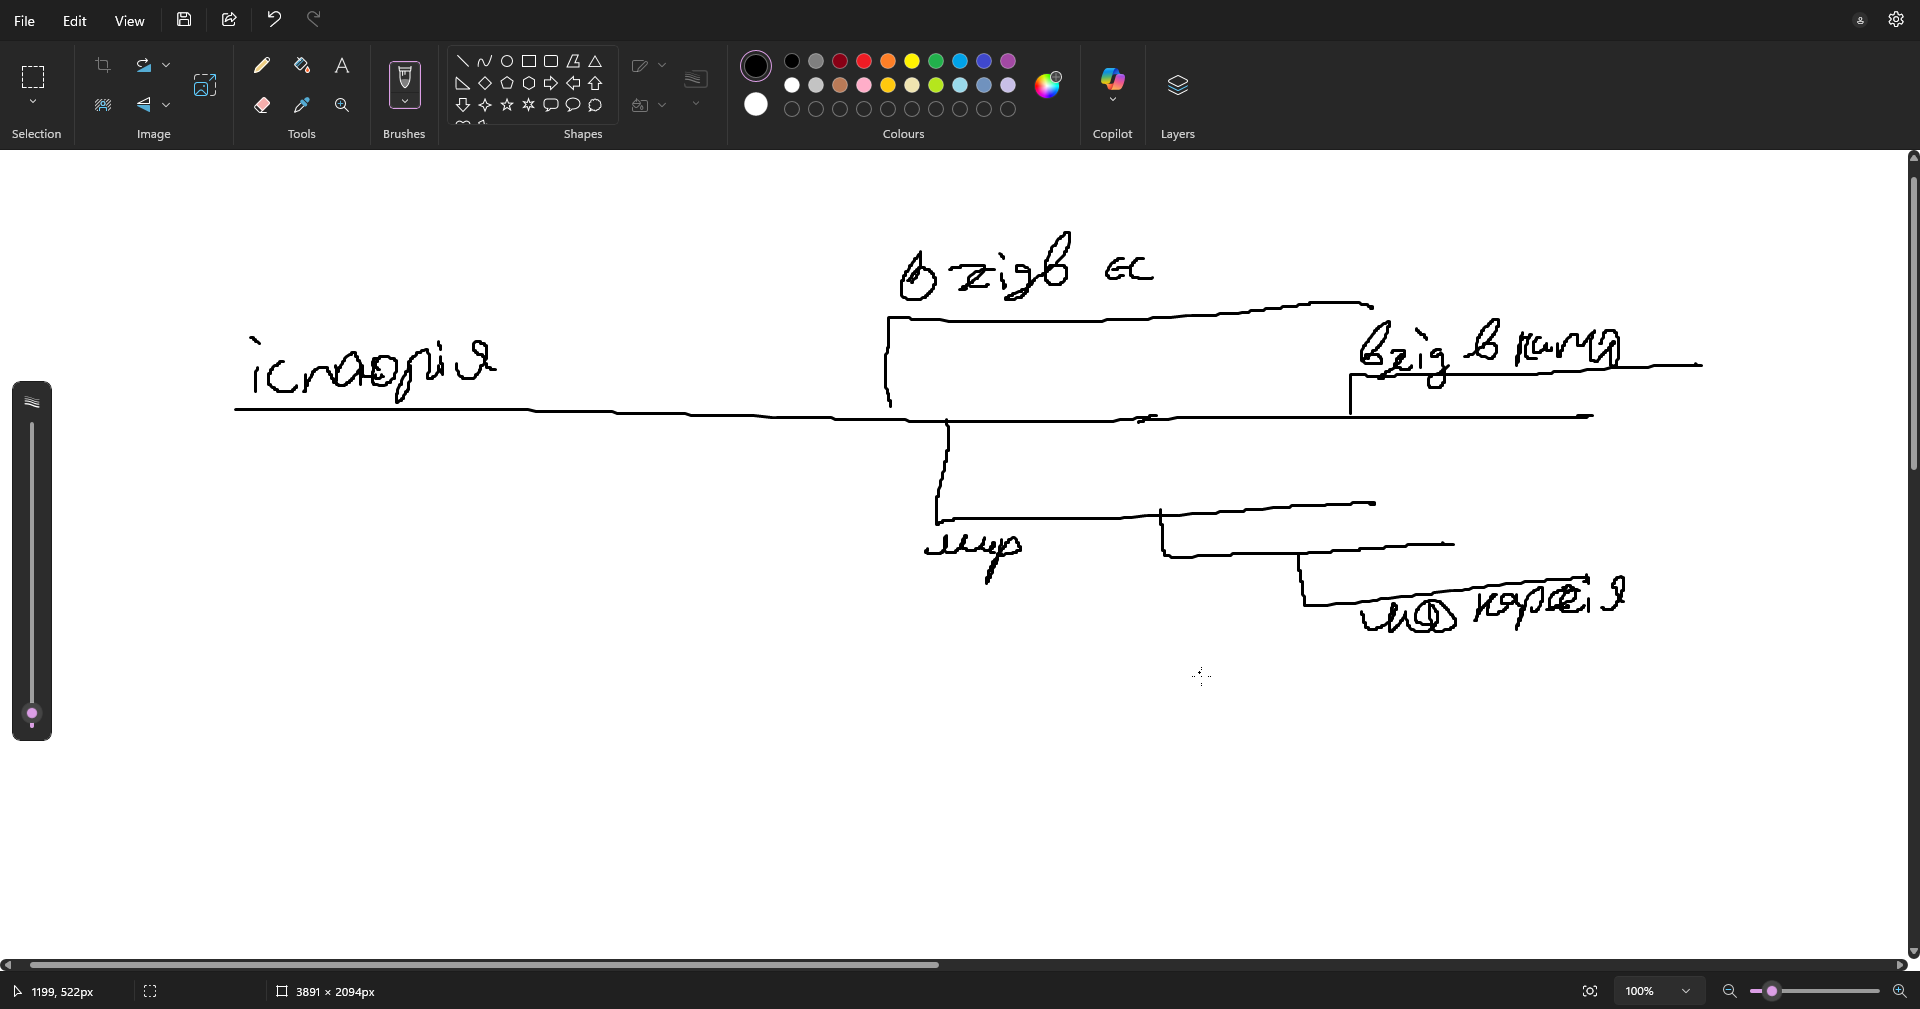 File Edit View
Selection
Image
Tools
Brushes
Shapes
Colours
Copilot
Layers
в зїзд в єс
історія
вхід в
мир
1199, 522px
3891 × 2094px
100%